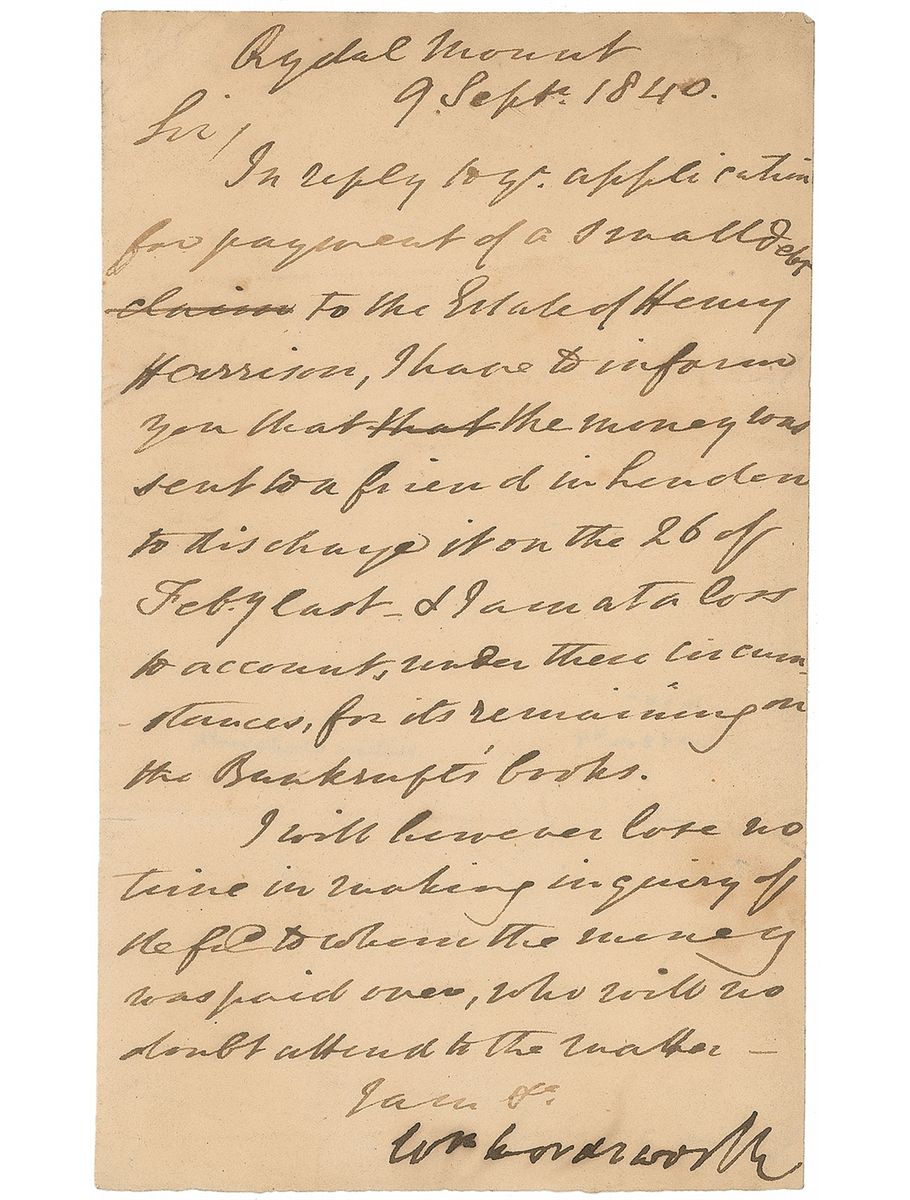 Rydal Mount
9 Septr. 1840.
Sir,
In reply to yr. application
for payment of a small debt
claim to the Estate of Henry
Harrison, I have to inform
you that that the money was
sent to a friend in London
to discharge it on the 26 of
Feb.y last - & I am at a loss
to account, under these circum-
-stances, for its remaining on
the Bankrupt's books.
I will however lose no
time in making inquiry of
the fd to whom the money
was paid over, who will no
doubt attend to the matter —
I am &c
Wm Wordsworth